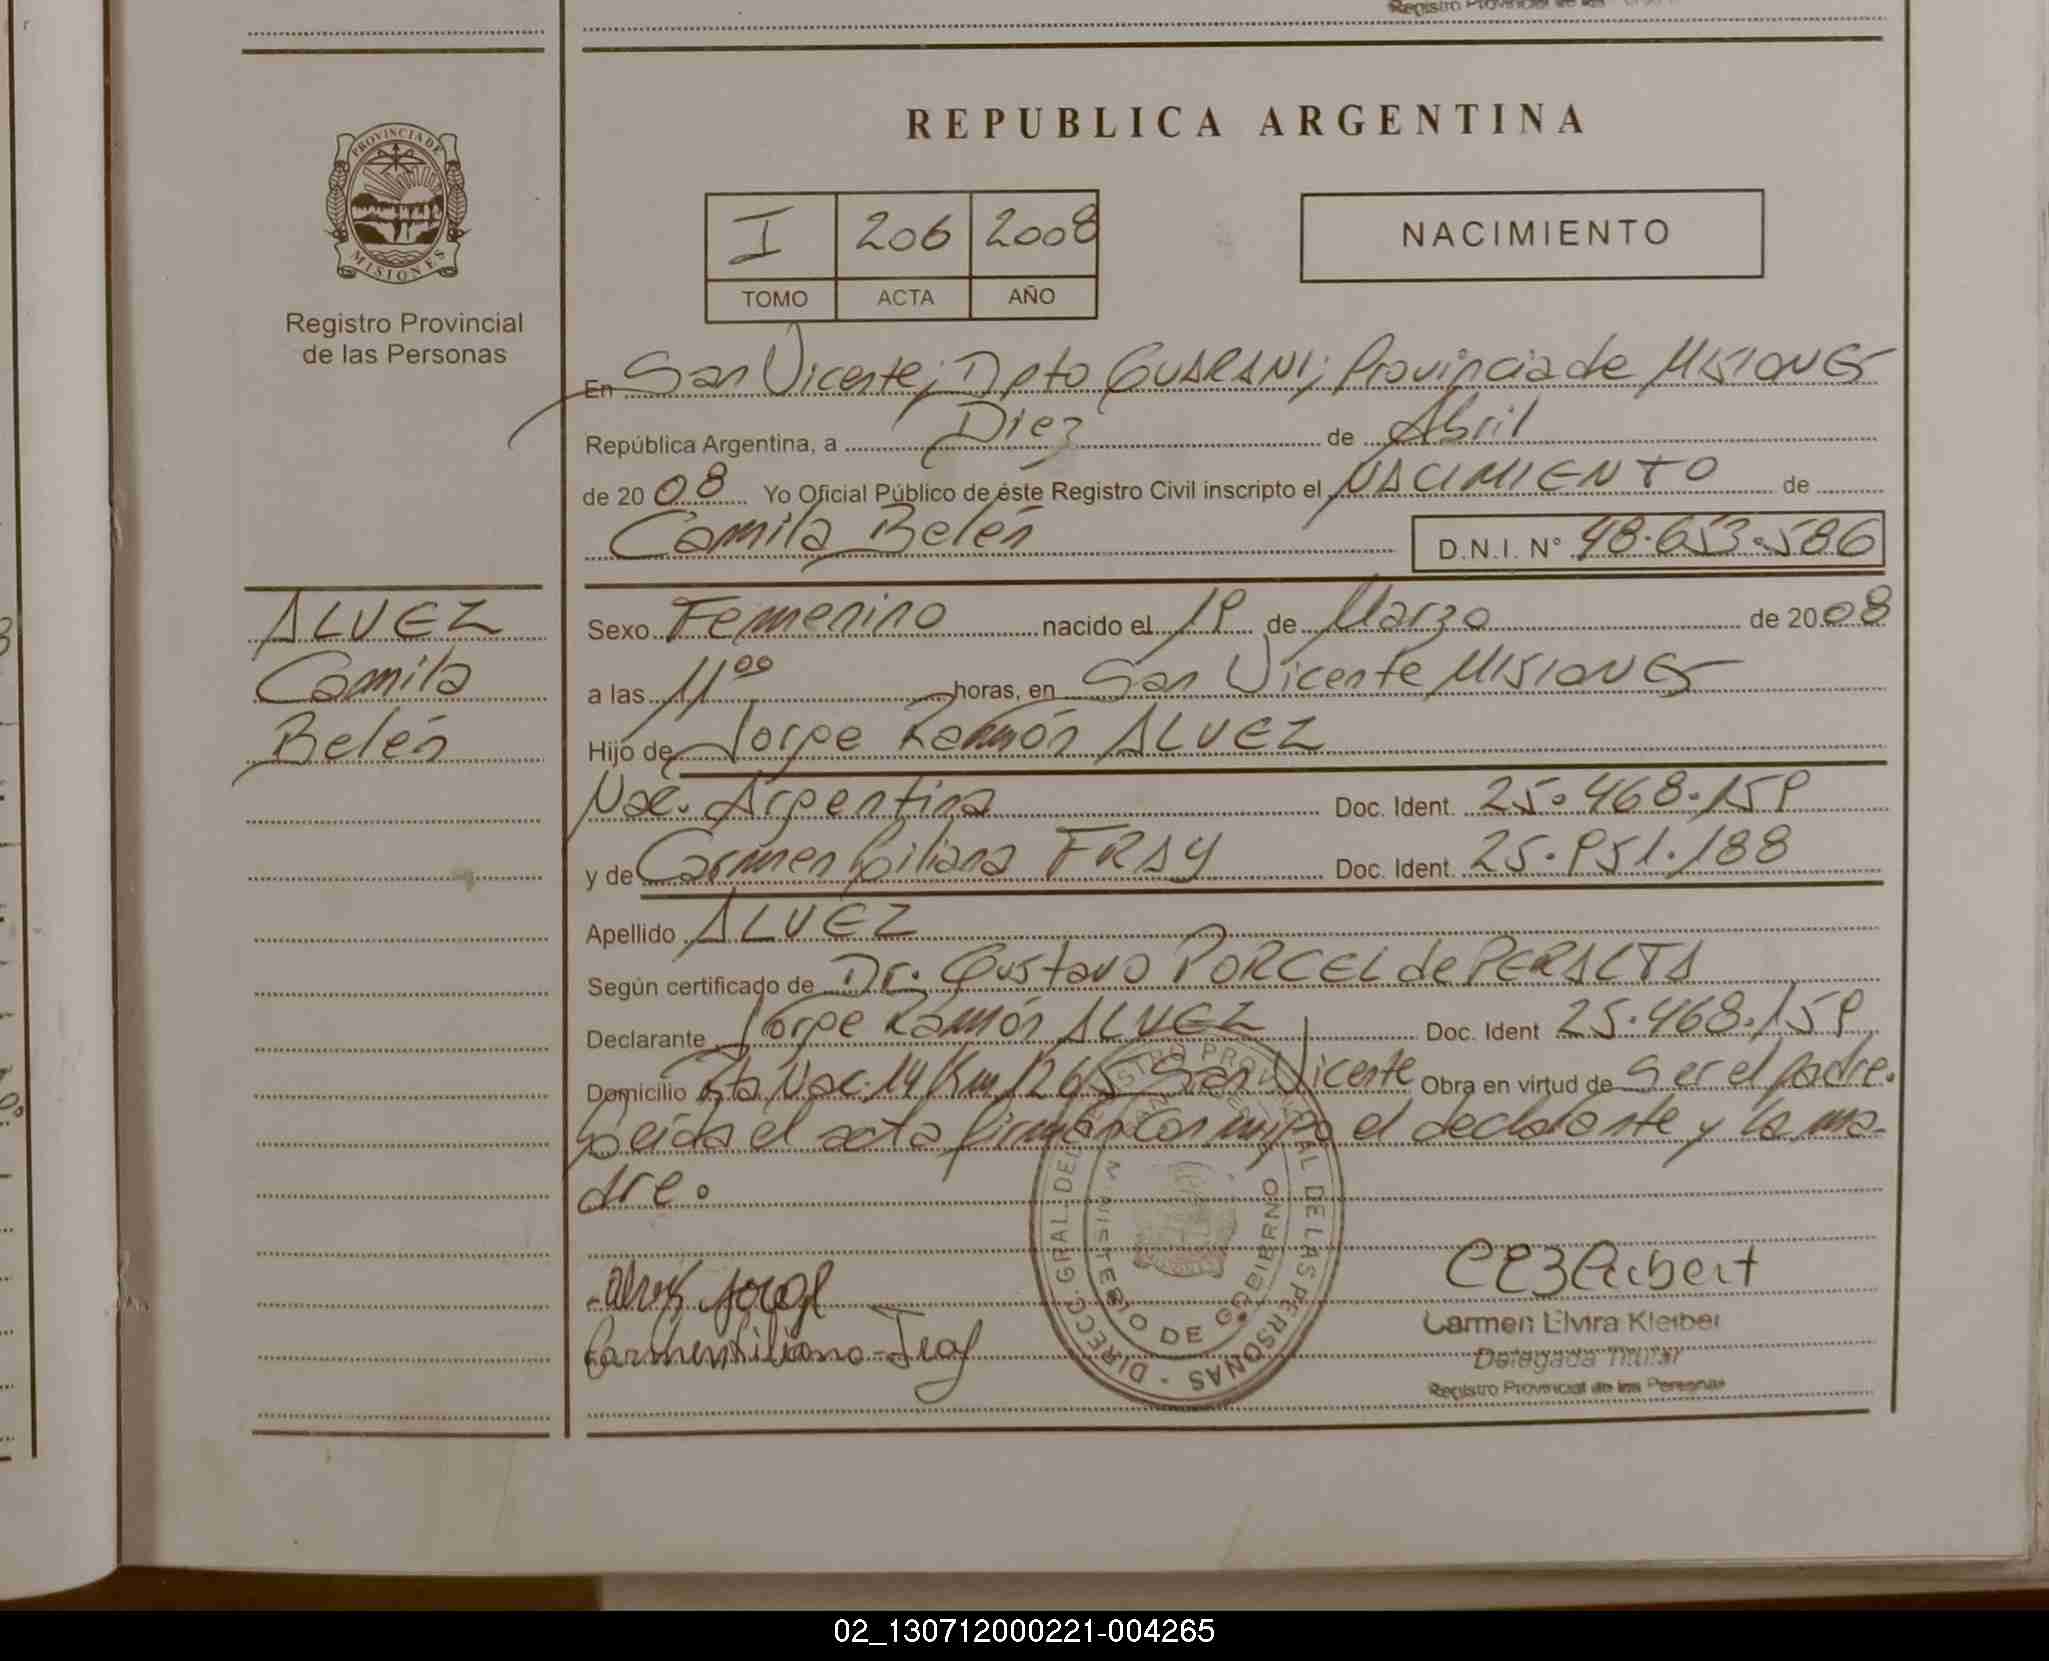 REPUBLICA ARGENTINA
PROVINCIA DE
MISIONES
Registro Provincial
de las Personas
I 206 2008
TOMO ACTA AÑO
NACIMIENTO
En San Vicente; Dpto GUARANI; Provincia de MISIONES
República Argentina, a Diez de Abril
de 20 08 Yo Oficial Público de éste Registro Civil inscripto el NACIMIENTO de
Camila Belén D.N.I. N° 48.653.586
ALVEZ
Camila
Belén
Sexo Femenino nacido el 19 de Marzo de 20 08
a las 11 00 horas, en San Vicente MISIONES
Hijo de Jorge Ramón ALVEZ
Nac. Argentina Doc. Ident. 25.468.159
y de Carmen Liliana FRAY Doc. Ident. 25.951.188
Apellido ALVEZ
Según certificado de Dr. Gustavo PORCEL de PERALTA
Declarante Jorge Ramón ALVEZ Doc. Ident 25.468.159
Domicilio Rta Nac. 14 Km 1265 San Vicente Obra en virtud de Ser el padre.
Leída el acta firman conmigo el declarante y la ma-
dre.
DIRECC. GRAL. DEL REGISTRO PROVINCIAL DE LAS PERSONAS
MINISTERIO DE GOBIERNO
Carmen Elvira Kleiber
Delegada Titular
Registro Provincial de las Personas
02_130712000221-004265